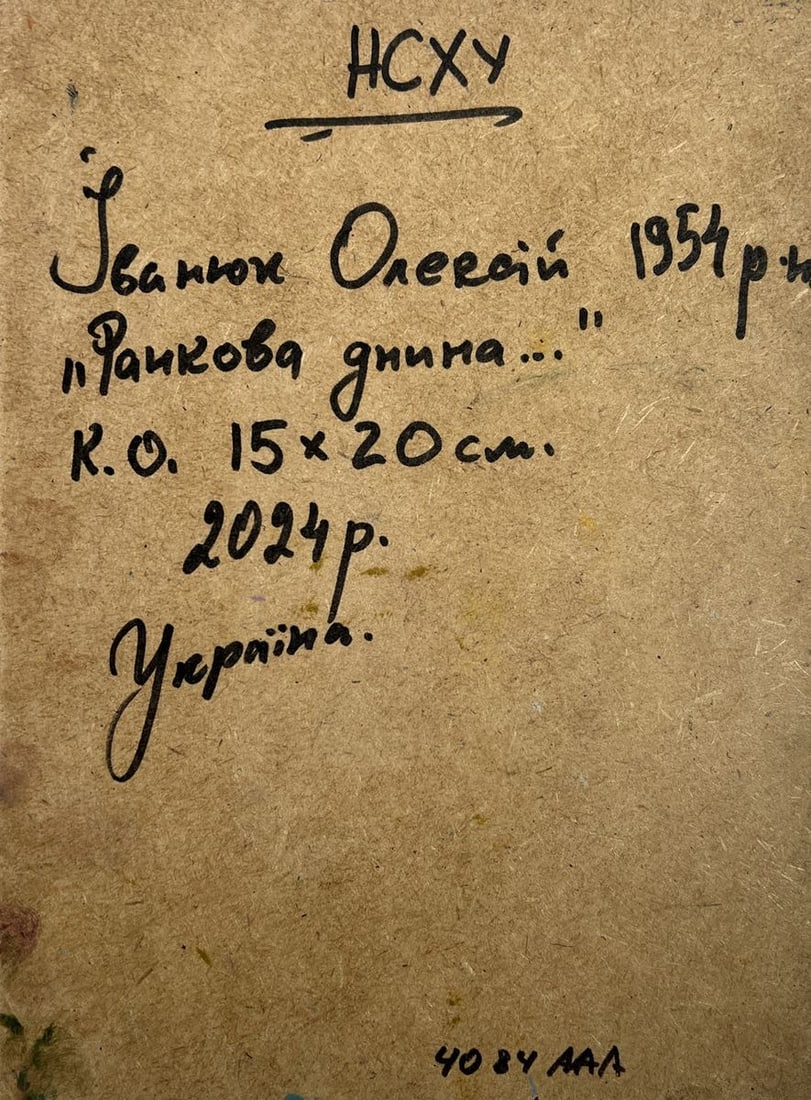 НСХУ
Іванюк Олексій 1954 р.н
„Ранкова днина..."
К.О. 15х20см.
2024р.
Україна.
4084 ААЛ